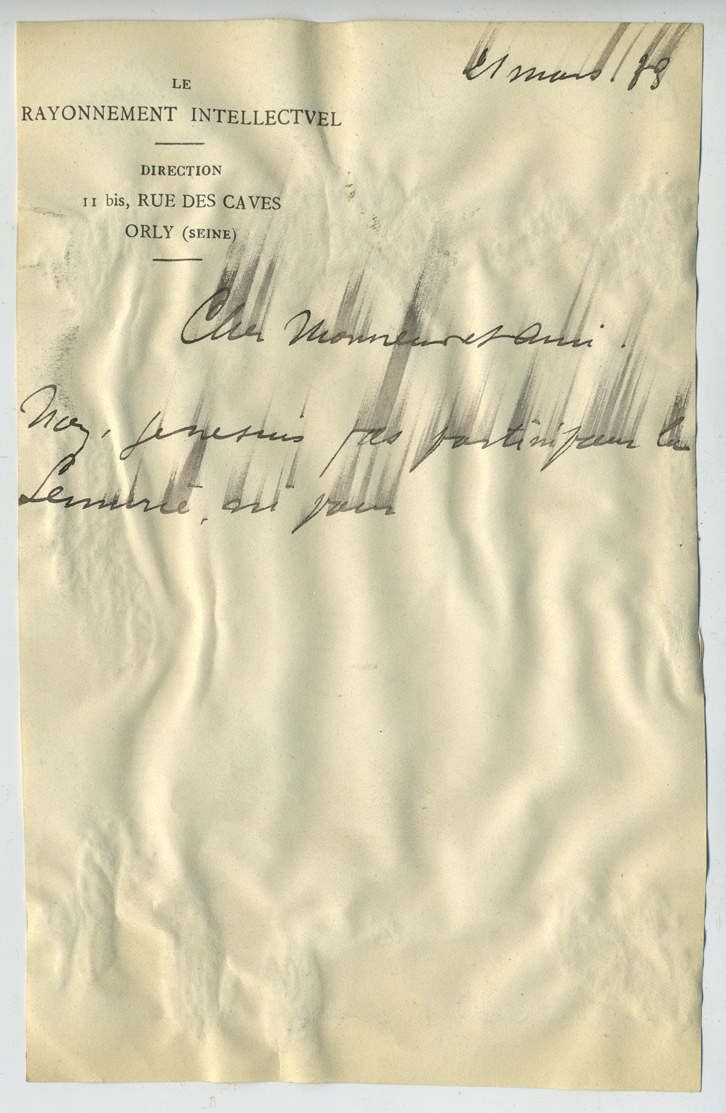 LE
RAYONNEMENT INTELLECTVEL
DIRECTION
11 bis, RUE DES CAVES
ORLY (SEINE)
21 mars 38
Cher Monsieur et Ami.
Non, je ne suis pas parti pour la
Lemurie, ni pour